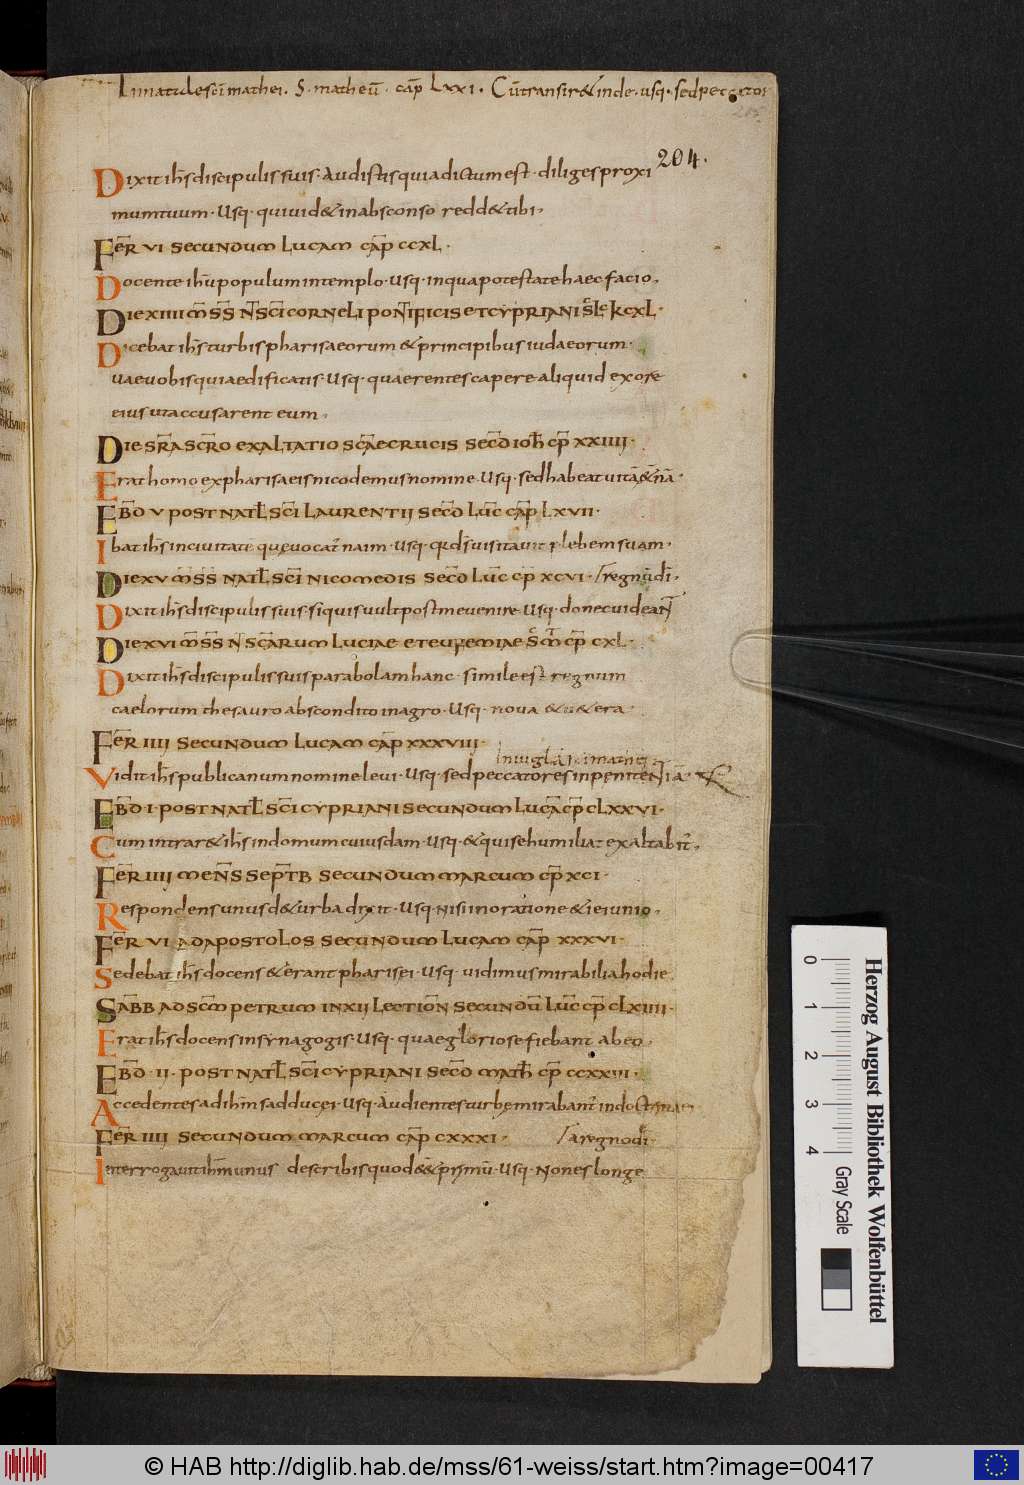 In natale sci mathei. S. matheū. cap̄ Lxxi. Cū transir& inde. usq. sed peccator
204.
Dixit ih̄s discipulis suis. Audistis quia dictum est. diliges proxi
mum tuum. Usq. qui uid& in absconso redd& tibi.
FER̄ VI SECUNDUM LUCAM CAP̄ CCXL.
Docente ihū populum in templo. Usq. in qua potestate haec facio.
DIE XIIII M̄S S̄ N̄T SCI CORNELI PONTIFICIS ET CYPRIANI SLC̄ K CXL.
Dicebat ih̄s turbis pharisaeorum & principibus iudaeorum.
uae uobis qui aedificatis. Usq. quaerentes capere aliquid ex ore
eius ut accusarent eum.
DIE S̄RA SCR̄O EXALTATIO SCAE CRUCIS SECD̄ IOH̄ CP̄ XXIIII.
Erat homo ex pharisaeis nicodemus nomine. Usq. sed habeat uitā &nā.
EBD̄ V POST NATL̄ SCI LAURENTII SECD̄ LUC̄ CAP̄ LXVII.
Ibat ih̄s in ciuitatē que uocat̄ naim. Usq. q̄d d̄s uisitauit plebem suam.
DIE XV M̄S S̄ NATL̄ SCI NICOMEDIS SECD̄ LUC̄ CP̄ XCVI. regnū dī.
Dixit ih̄s discipulis suis. si quis uult post me uenire. Usq. donec uideant
DIE XVI M̄S S̄ N̄ SCARUM LUCIAE ET EUFEMIAE S̄C M̄T CP̄ CXL.
Dixit ih̄s discipulis suis parabolam hanc. simile est regnum
caelorum thesauro abscondito in agro. Usq. noua & u&era.
FER̄ IIII SECUNDUM LUCAM CAP̄ XXXVIII.
In uigłā sci mathei
Vidit ih̄s publicanum nomine leui. Usq. sed peccatores in penitentiā.
EBD̄ I. POST NATL̄ SCI CYPRIANI SECUNDUM LUCĀ CP̄ CLXXVI.
Cum intrar& ih̄s in domum cuiusdam. Usq. & qui se humiliat exaltabit̄.
FER̄ IIII MEN̄S SEPTB̄ SECUNDUM MARCUM CP̄ XCI.
Respondens unus d& urba dixit. Usq. nisi in oratione & ieiunio.
FER̄ VI AD APOSTOLOS SECUNDUM LUCAM CAP̄ XXXVI.
Sedebat ih̄s docens & erant pharisei. Usq. uidimus mirabilia hodie
SABB̄ AD SC̄M PETRUM IN XII LECTION̄ SECUNDŪ LUC̄ CP̄ CLXIIII.
Erat ih̄s docens in synagogis. Usq. quae gloriose fiebant ab eo.
EBD̄ II. POST NATL̄ SCI CYPRIANI SECD̄ MATH̄ CP̄ CCXXIII.
Accedentes ad ih̄m sadducei. Usq. Audientes turbe mirabant̄ in doctrina
FER̄ IIII SECUNDUM MARCUM CAP̄ CXXXI. a regno dī.
Interrogauit ih̄m unus de scribis quod ē& primū. Usq. Non es longe
Herzog August Bibliothek Wolfenbüttel
0 1 2 3 4 Gray Scale
© HAB http://diglib.hab.de/mss/61-weiss/start.htm?image=00417